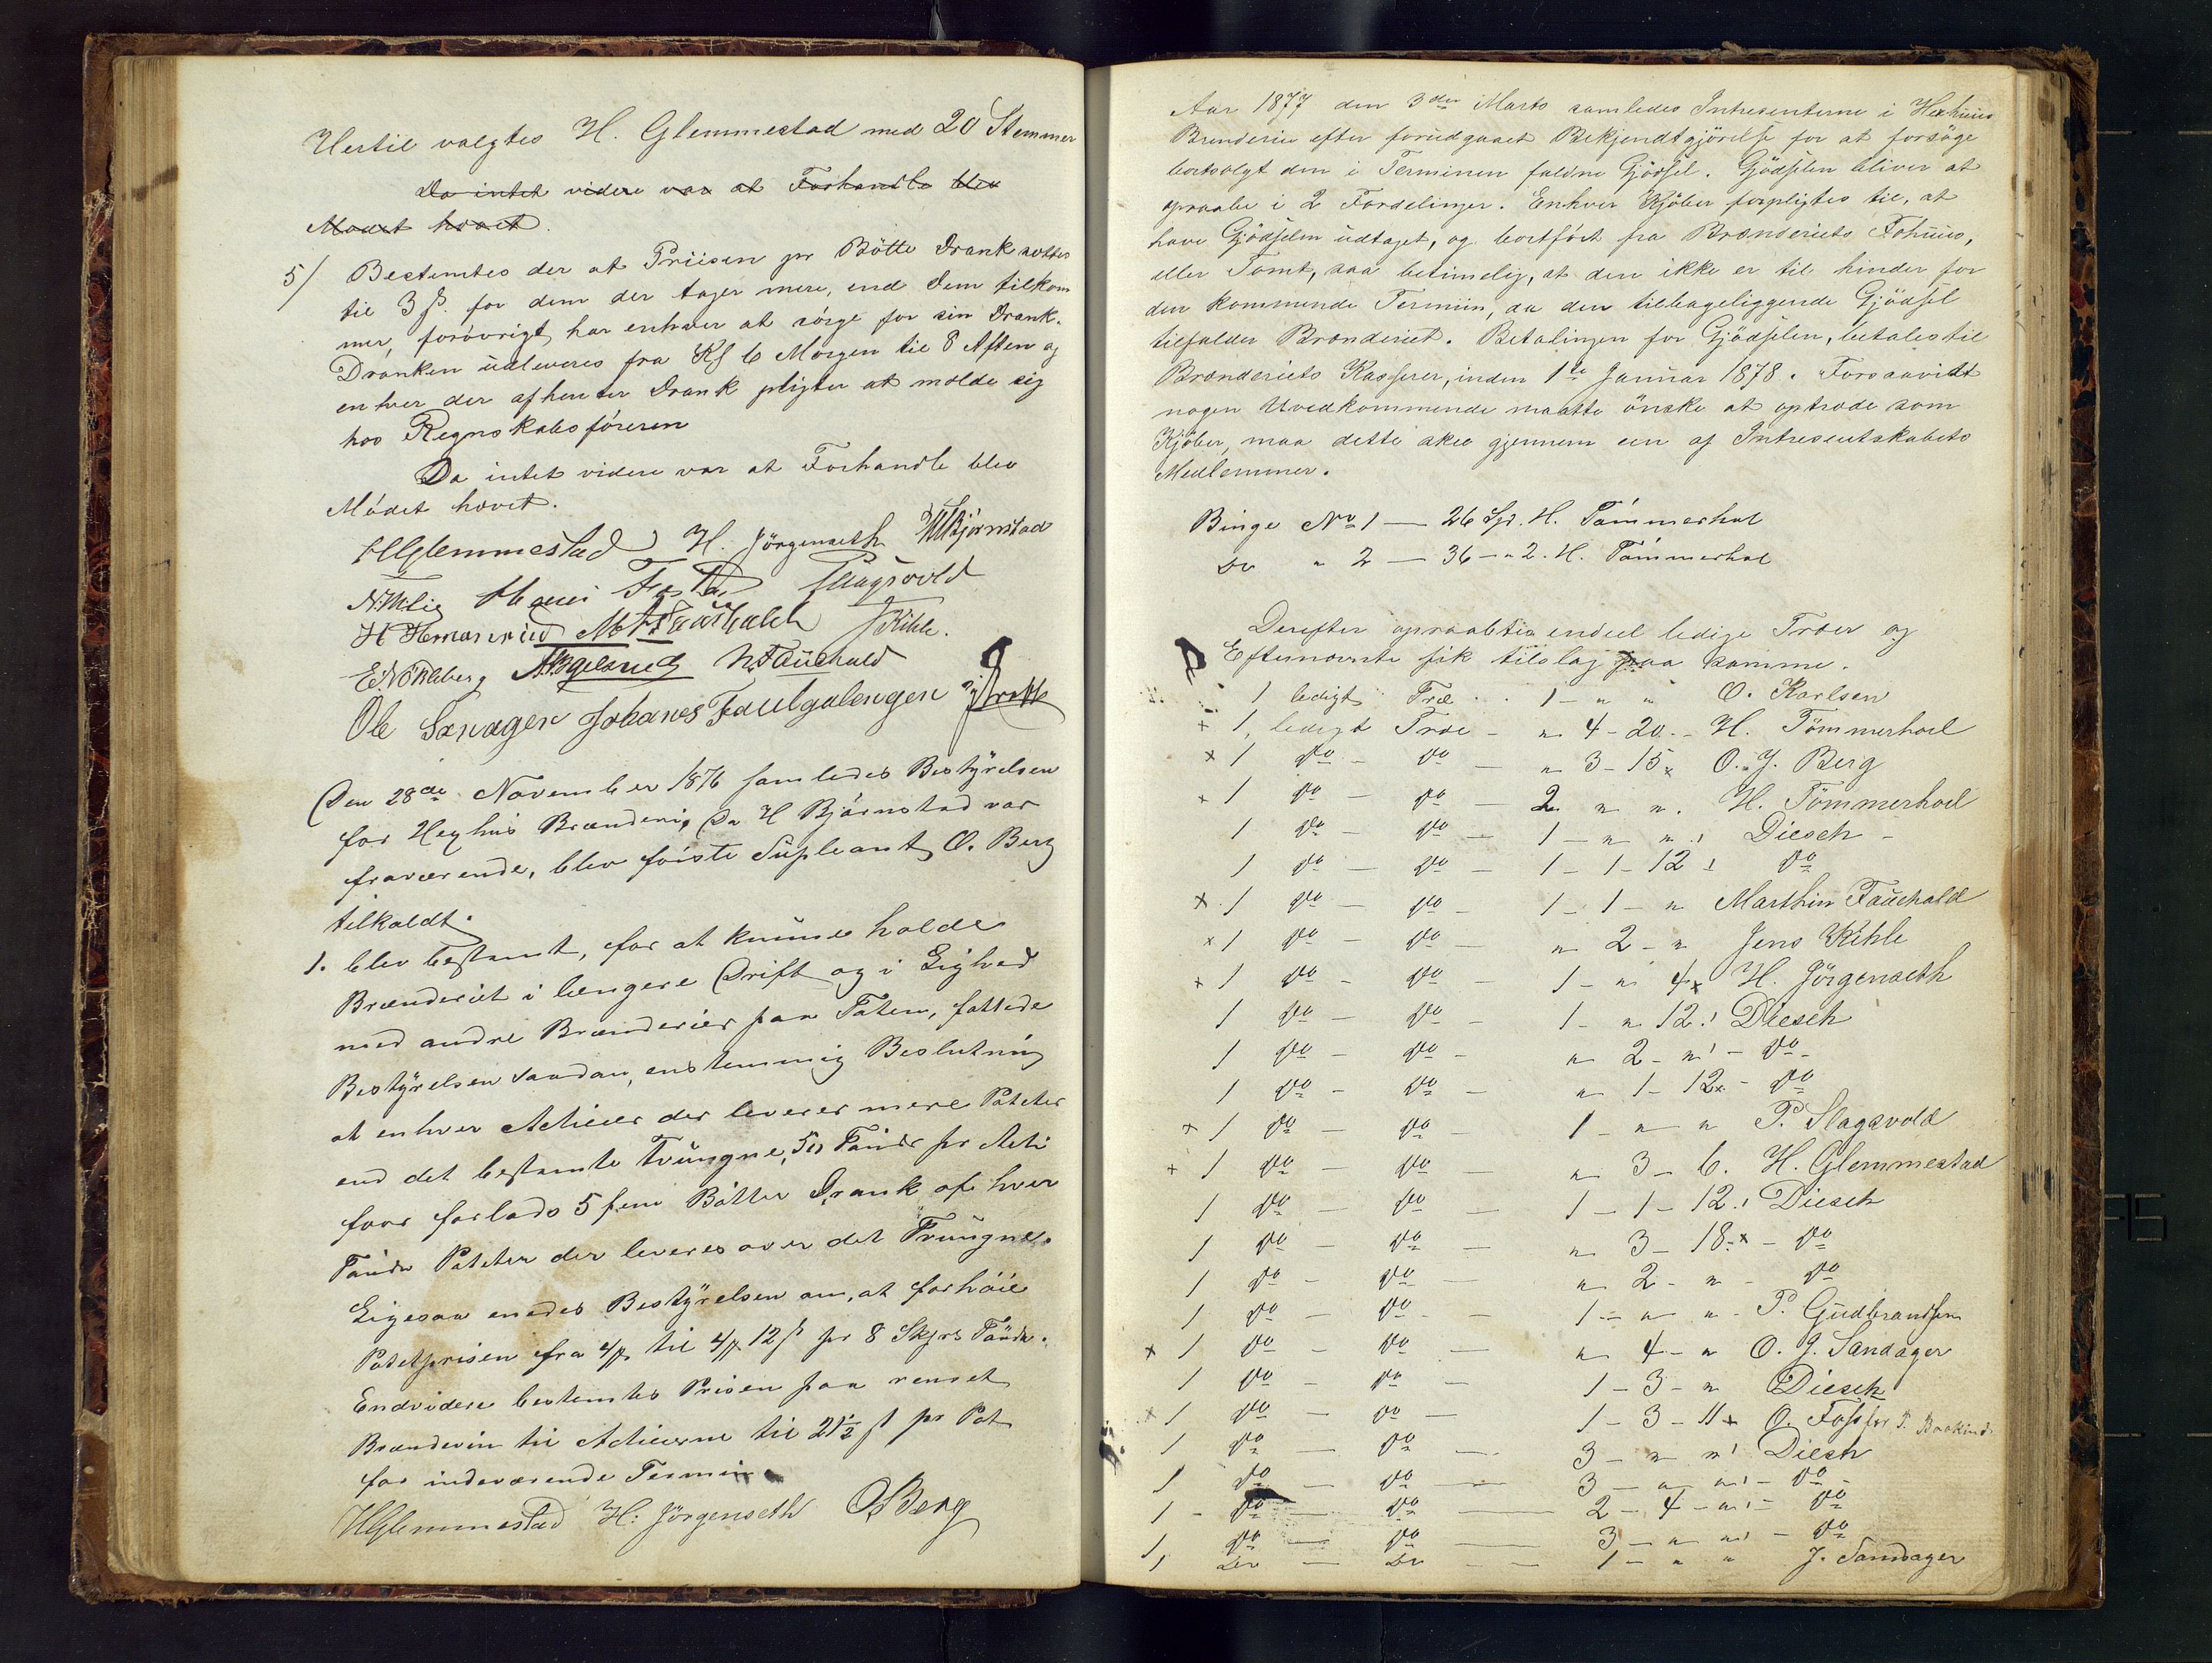 Hertil valgtes H. Glemmestad med 20 Stemmer
Da intet videre var at Forhandle blev
Mødet hævet.
5/ Bestemtes der at Priisen pr Bøtte Drank sættes
til 3 ß. for dem der tager mere, end dem tilkom
mer, forøvrigt har enhver at sørge for sin Drank.
Dranken udleveres fra Kl 6 Morgen til 8 Aften og
enhver der afhenter Drank pligter at mælde sig
hos Regnskabsføreren
Da intet videre var at Forhandle blev
Mødet hævet.
HGlemmestad H. Jörgenseth HBjørnstad
N. Mlig PSlagsvold
J Kihle.
N. Fauchald
Ole Sandager Johanes Faulgalengen
Den 28de November 1876 samledes Bestÿrelsen
for Hexhus Brænderi, Da H Bjørnstad var
fraværende, blev første Supleant O. Berg
tilkaldt.
1. blev bestemt, for at kunne holde
Brænderiet i længere Drift og i Lighed
med andre Brænderier paa Toten, fattede
Bestÿrelsen saadan, enstemmig Beslutning
at enhver Actieeier der leverer mere Poteter
end det bestemte Tvungne, 50 Tønder pr Acti
faar forlods 5 fem Bøtter Drank af hver
Tønde Poteter der leveres over det Tvungne.
Ligesaa enedes Bestÿrelsen om, at forhøie
Potetprisen fra 4/p til 4/p 12 ß pr 8 Skjps Tønde.
Endvidere bestemtes Prisen paa renset
Brændevin til Actieeierne til 21½ ß pr Pot
for indeværende Termin.
HGlemmestad H. Jörgenseth OBerg
Aar 1877 den 3die Marts samledes Intresenterne i Hexhuus
Brænderie efter forudgaaet Bekjendtgjörelse for at forsöge
bortsolgt den i Terminen faldne Gjödsel. Gjödselen bliver at
opraabe i 2 Fordelinger. Enhver Kjöber forpligtes til, at
have Gjödselen udtaget, og bortfört fra Brænderiets Föhuus,
eller Tomt, saa betimelig, at den ikke er til hinder for
den kommende Termiin, da den tilbageliggende Gjödsel
tilfalder Brænderiet. Betalingen for Gjödselen, betales til
Brænderiets Kasserer, inden 1ste Januar 1878. Forsaavidt
nogen Uvedkommende maatte önske at optræde som
Kjöber, maa dette skee gjennem een af Intresentskabets
Medlemmer.
Binge No 1 — 26 Spd. H. Tömmerhol
Do " 2 — 36 — " 2. H. Tömmerhol
Derefter opraabtes endeel ledige Træer og
Efternævnte fik tilslag paa samme.
1 ledigt Træ . . 1 — " " O. Karlsen
x 1, ledigt Træ — " 4 - 20 - H. Tömmerhoel
x 1 do — do — " 3 - 15 x O. J. Berg
x 1 do — do — 2 " " . H. Tömmerhoel
1 do — do — 1 — " " ! Diesch —
1 do — do — 1 - 1 - 12 ! do
x 1 do — do — 1 - 1 - " Marthin Fauchald
x 1 do — do — " 2 - " Jens Kihle
x 1 do — do — 1 - " 4 x H. Jörgenseth
1 do — do — 1 - " 12 ! Diesch
1 do — do — " 2 - " ! - do -
1 do — do — " 1 - 12 x - do
x 1 do — do — 1 - " " P. Slagsvold
x 1 do — do — " 3 - 6. H. Glemmestad
1 do — do — 1 - 1 - 12 ! Diesch
1 do — do — " 3 - 18 x - do
1 do — do — " 2 - " - do
1 do — do — 1 - " " - P. Gudbrandsen
x 1 do — do — " 4 - " O. J. Sandager
1 do — do — 1 - 3 - " Diesch
x 1 do — do — 1 - 3 - 11 x O. Foss for P.
1 do — do — 3 - " " ! Diesch
1 do — do — 3 - " " ! - do -
1 - do — do — 2 - 4 - " ! - do
1 do — do — 3 - " " ! - do
1 Do — Do — 1 - " " J. Sandager